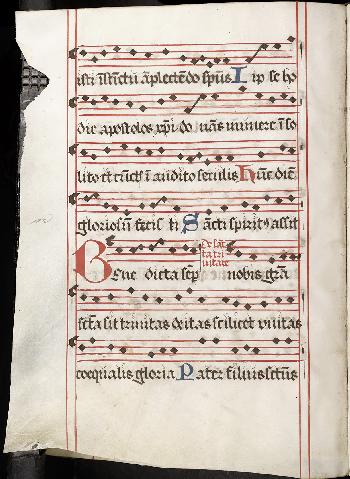 isti īstīctu āplectēdo spūs Ip se ho
die apostolos xp̄i do nās munere ī so
lito et cūctis ī audito seculis Hūc diē
gloriosū fecis ti Sācti spiritꝰ assit
De sāc
ta tri
nitate
Bene dicta sēp nobis gr̄a
sc̄ta sit trinitas deitas scilicet unitas
coequalis gloria Pater filius sc̄tus